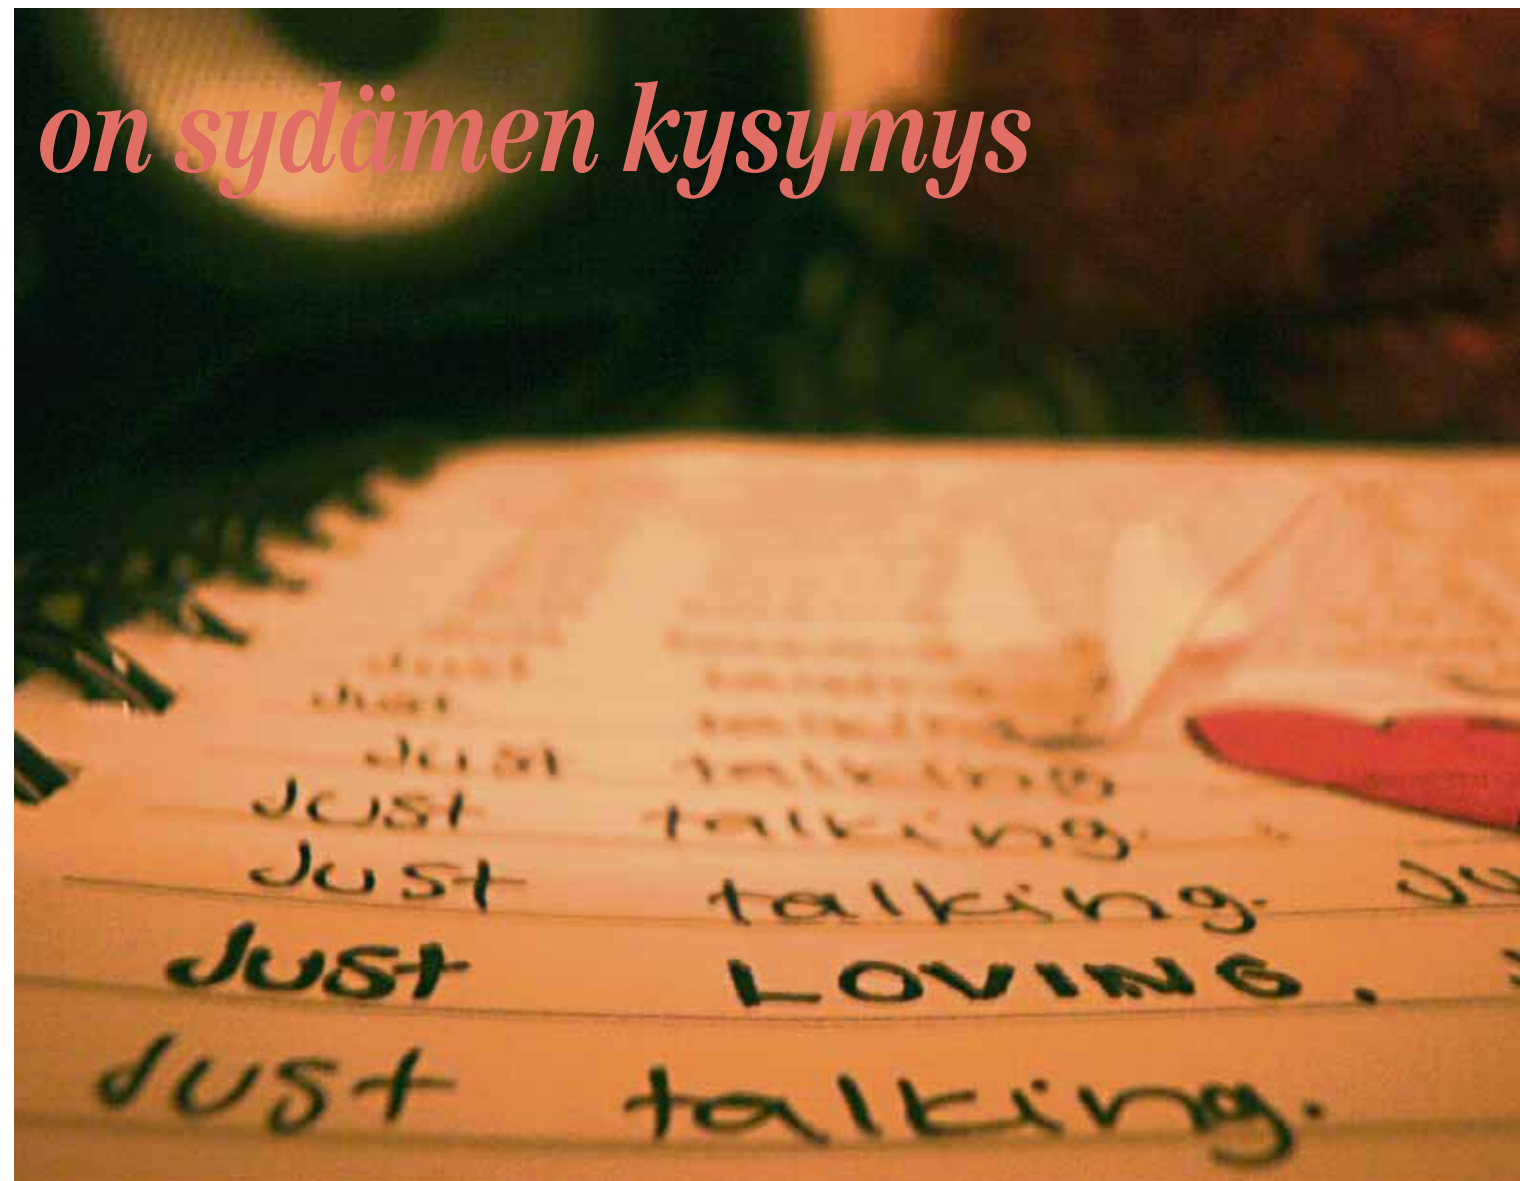 on sydämen kysymys
Just
Just talking
Just talking.
Just talking. Ju
Just LOVING.
Just talking.